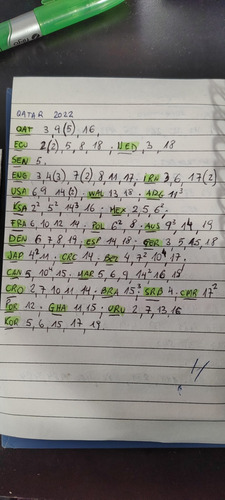 QATAR 2022
QAT 3, 9(5), 16,
ECU 2(2), 5, 8, 18 . NED, 3, 18
SEN 5.
ENG 3, 4(3), 7(2) 8, 11, 17, IRN 3, 6, 17(2)
USA 6, 9, 14(2) . WAL 13, 18 . ARG 11³
KSA 2² 5² 14³ 16 . MEX 2, 5, 6²
FRA 6, 10, 12, 14 . POL 6² 8 . AUS 9² 14, 19
DEN 6, 7, 8, 19, ESP 14, 18, GER 3, 5, 15, 18
JAP 4² 11 . CRC 14 . BEL 4, 7² 10⁴ 17 .
CAN 5, 10⁴ 15 . MAR 5, 6, 9, 14² 16, 18
CRO 2, 7, 10, 11, 14 . BRA 15³ . SRB 4 . CMR 17²
POR 12 . GHA 11, 15, URU 2, 7, 13, 16
KOR 5, 6, 15, 17, 19